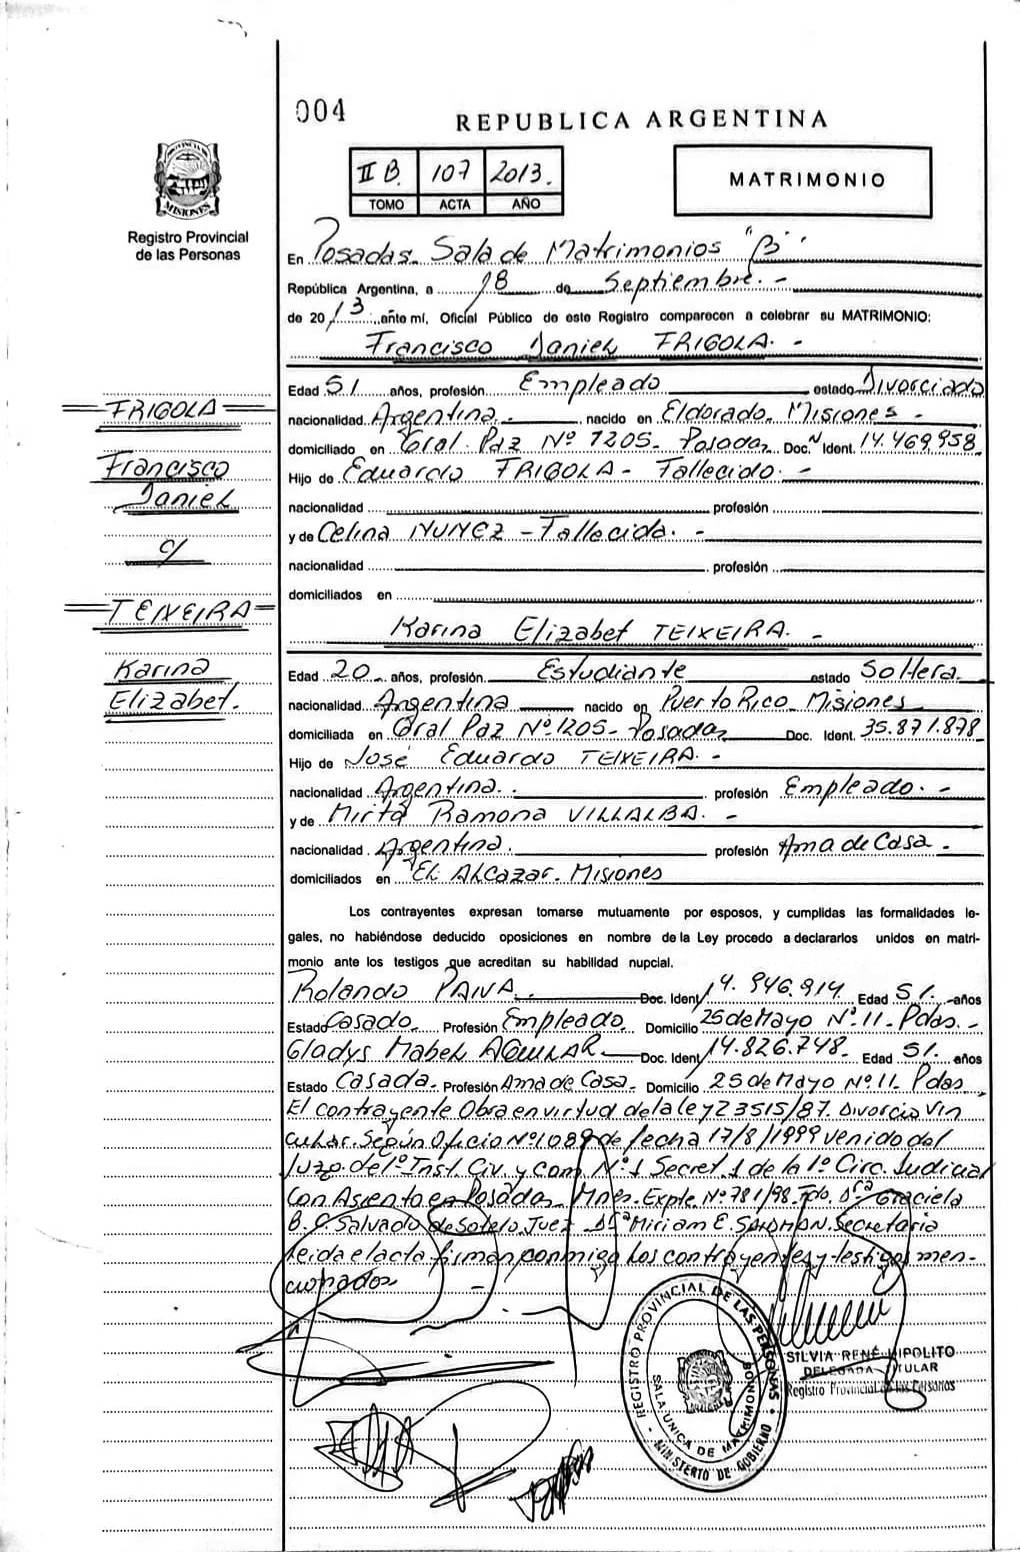 004
REPUBLICA ARGENTINA
II B. 107 2013.
TOMO ACTA AÑO
MATRIMONIO
PROVINCIA
MISIONES
Registro Provincial
de las Personas
En Posadas. Sala de Matrimonios "B"
República Argentina, a 18 de Septiembre. -
de 2013 ante mí, Oficial Público de este Registro comparecen a celebrar su MATRIMONIO:
Francisco Daniel FRIGOLA. -
Edad 51 años, profesión Empleado estado Divorciado
nacionalidad Argentina. - nacido en Eldorado. Misiones -
domiciliado en Gral. Paz Nº 1205- Posadas Doc. Ident. 14.469.958
Hijo de Eduardo FRIGOLA - Fallecido. -
nacionalidad profesión
y de Celina NUÑEZ - Fallecida. -
nacionalidad profesión
domiciliados en
FRIGOLA
Francisco
Daniel
c/
TEIXEIRA
Karina
Elizabet.
Karina Elizabet TEIXEIRA. -
Edad 20 años, profesión Estudiante estado Soltera.
nacionalidad Argentina nacido en Puerto Rico. Misiones
domiciliada en Gral Paz Nº 1205- Posadas Doc. Ident. 35.871.878
Hijo de José Eduardo TEIXEIRA. -
nacionalidad Argentina. profesión Empleado. -
y de Mirta Ramona VILLALBA. -
nacionalidad Argentina. profesión Ama de Casa.
domiciliados en EL ALCAZAR. Misiones
Los contrayentes expresan tomarse mutuamente por esposos, y cumplidas las formalidades le-
gales, no habiéndose deducido oposiciones en nombre de la Ley procedo a declararlos unidos en matri-
monio ante los testigos que acreditan su habilidad nupcial.
Rolando PAIVA. Doc. Ident 14.946.914 Edad 51. años
Estado Casado. Profesión Empleado. Domicilio 25 de Mayo Nº 11- Pdas. -
Gladys Mabel AGUILAR Doc. Ident 14.826.748- Edad 51. años
Estado Casada. Profesión Ama de Casa. Domicilio 25 de Mayo Nº 11. Pdas
El contrayente Obra en virtud de la ley 23515/87. Divorcio Vin
cular. Según Oficio Nº 1089 de fecha 17/8/1999 venido del
Juzg. del 1º Inst. Civ. y Com. Nº 1 Secret. 1 de la 1º Circ. Judicial
Con Asiento en Posadas Mnes. Expte. Nº 781/98. Fdo. Dra Graciela
B. C Salvado de Sotelo. Juez Dra Miriam E. Secretaria
Leida el acta firman conmigo los contrayentes y testigos men-
cionados -
REGISTRO PROVINCIAL DE LAS PERSONAS
SALA UNICA DE MATRIMONIOS
MINISTERIO DE GOBIERNO
SILVIA RENÉ HIPOLITO
DELEGADA TITULAR
Registro Provincial de las Personas